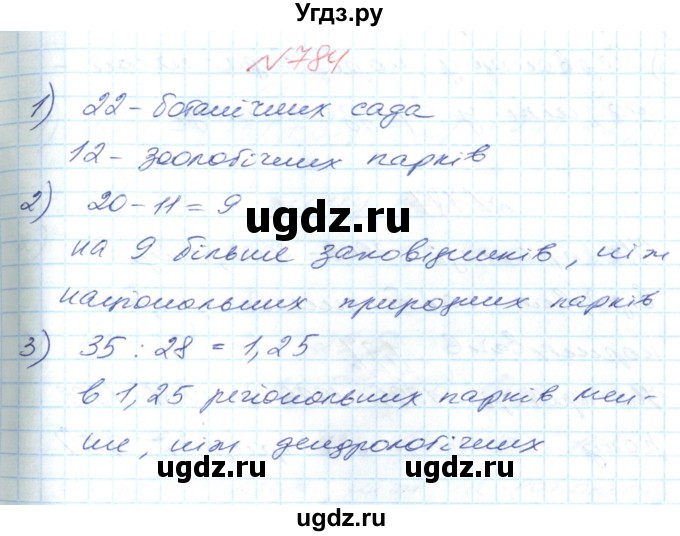 Угдз.ру
№784
1) 22 - ботанічних сада
12 - зоологічних парків
2) 20 - 11 = 9
на 9 більше заповідників, ніж
національних природних парків
3) 35 : 28 = 1,25
в 1,25 регіональних парків мен-
ше, ніж дендрологічних
ugdz.ru
ugdz.ru
ugdz.ru
ugdz.ru